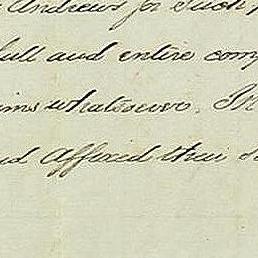 Andrews for such
full and entire com
ims whatsoever. In
nd affixed their S